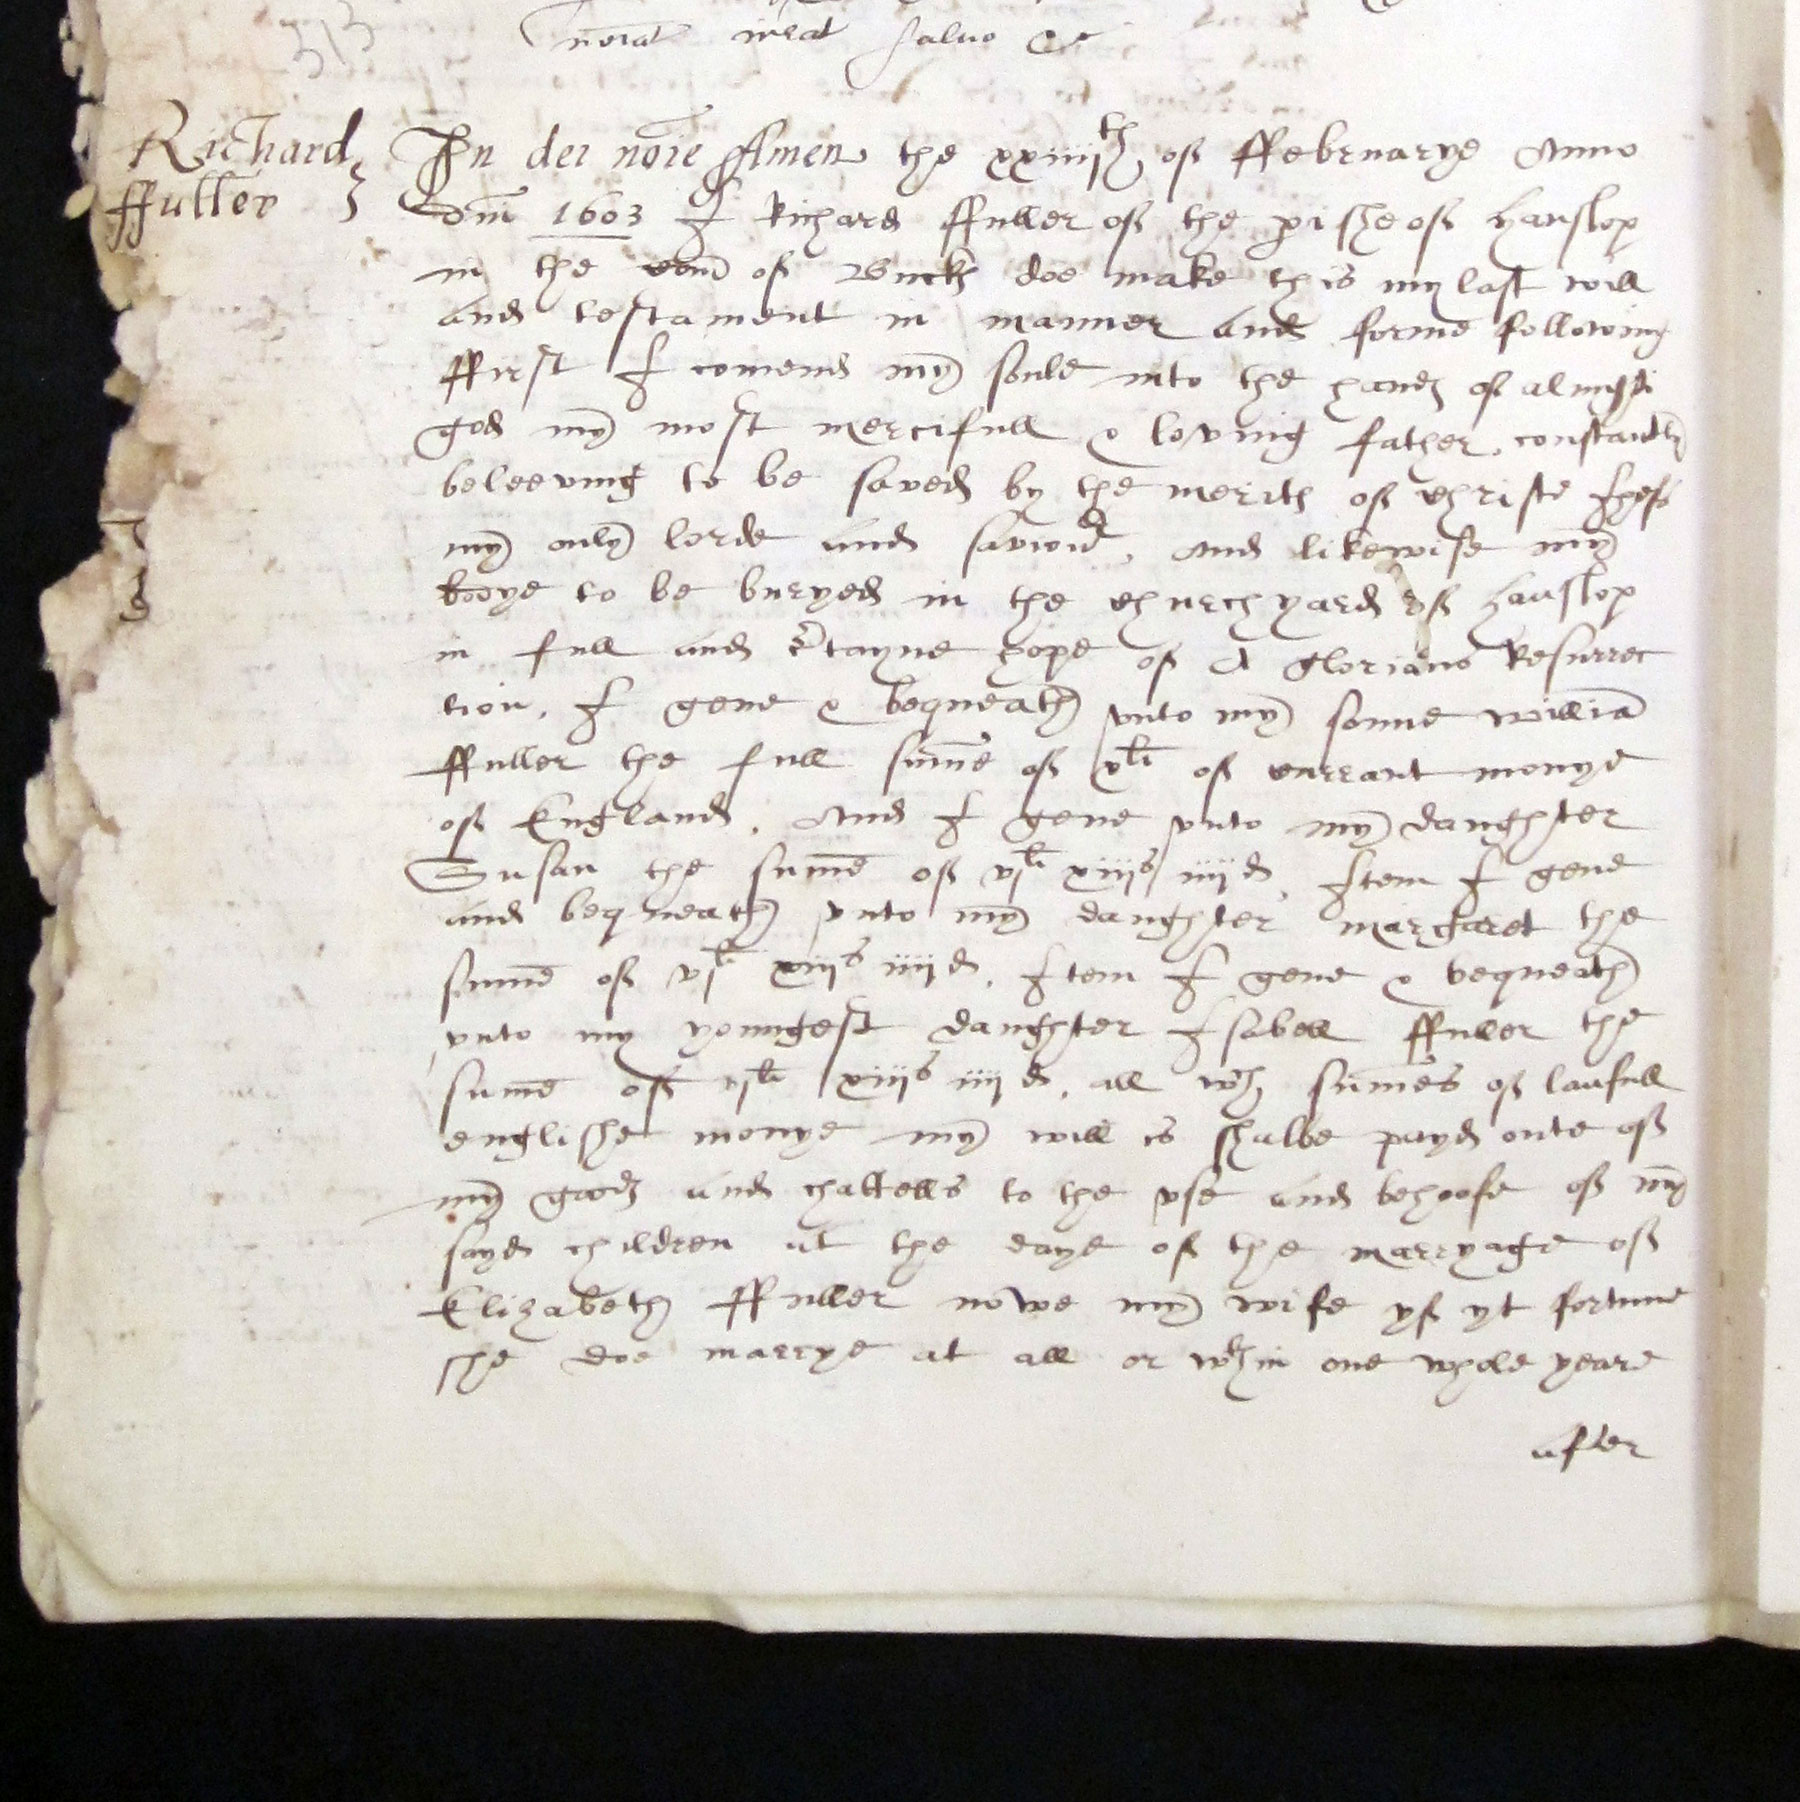 salvo &c
Richard
ffuller
In dei noīe Amen the xxiiijth of ffebruarye Anno
dm̄i 1603 I Richard ffuller of the pishe of Hanslop
in the com̄ of Buck doe make this my last will
and testament in manner and forme following
ffirst I comend my soule into the hands of almighti
god my most mercifull & loving father, constantly
beleeving to be saved by the merits of christe Jhesus
my only lorde and saviour, And likewise my
bodye to be buryed in the churchyard of Hanslop
in full and c'tayne hope of A glorious Resurrec
tion, I geve & bequeath vnto my sonne williā
ffuller the full sum̄e of xli of currant monye
of England, And I geve vnto my daughter
Susan the sum̄e of vjli xiijs iiijd, Item I geve
and bequeath vnto my daughter margaret the
sum̄e of vjli xiijs iiijd, Item I geve & bequeath
vnto my youngest daughter Isabell ffuller the
sum̄e of vjli xiijs iiijd, all wch sum̄es of laufull
englishe monye my will is shalbe payd oute of
my goods and chattells to the vse and behoofe of my
sayd children at the daye of the marryage of
Elizabeth ffuller nowe my wife yf yt fortune
she doe marrye at all or wthin one whole yeare
after